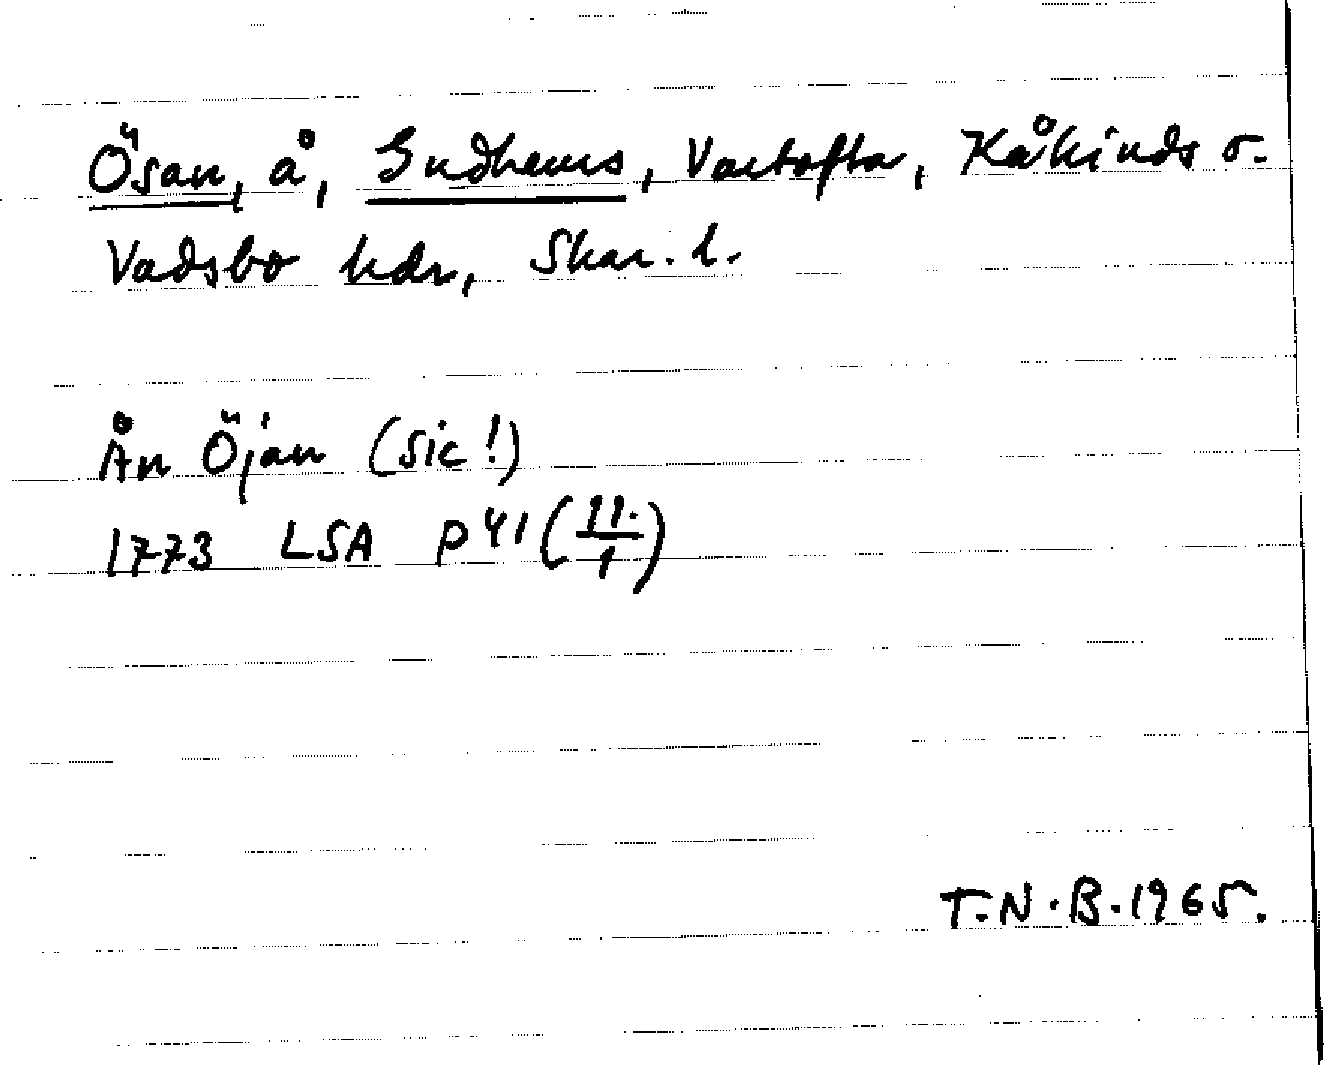 Ösan, å, Gudhems, Vartofta, Kåkinds o.
Vadsbo hdr, Skar. l.
Ån Öjan (sic!)
1773 LSA P 41 (11./1)
T.N.B. 1965.